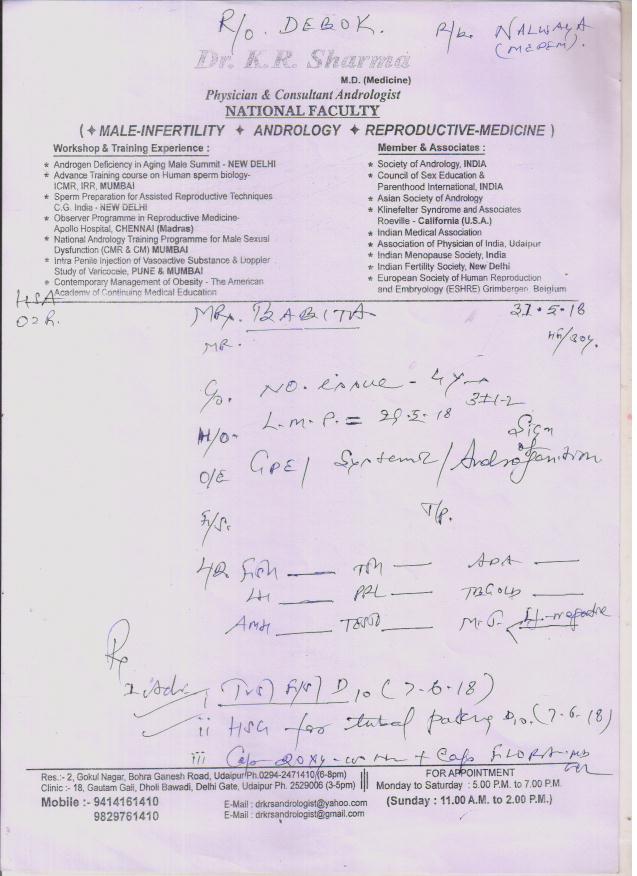 R/o. DEBOK.
R/b. NALWAYA
(MEDEM).
Dr. K.R. Sharma
M.D. (Medicine)
Physician & Consultant Andrologist
NATIONAL FACULTY
( ✦ MALE-INFERTILITY ✦ ANDROLOGY ✦ REPRODUCTIVE-MEDICINE )
Workshop & Training Experience :
* Androgen Deficiency in Aging Male Summit - NEW DELHI
* Advance Training course on Human sperm biology-
ICMR, IRR, MUMBAI
* Sperm Preparation for Assisted Reproductive Techniques
C.G. India - NEW DELHI
* Observer Programme in Reproductive Medicine-
Apollo Hospital, CHENNAI (Madras)
* National Andrology Training Programme for Male Sexual
Dysfunction (CMR & CM) MUMBAI
* Intra Penile Injection of Vasoactive Substance & Doppler
Study of Varicocele, PUNE & MUMBAI
* Contemporary Management of Obesity - The American
Academy of Continuing Medical Education
Member & Associates :
* Society of Andrology, INDIA
* Council of Sex Education &
Parenthood International, INDIA
* Asian Society of Andrology
* Klinefelter Syndrome and Associates
Roeville - California (U.S.A.)
* Indian Medical Association
* Association of Physician of India, Udaipur
* Indian Menopause Society, India
* Indian Fertility Society, New Delhi
* European Society of Human Reproduction
and Embryology (ESHRE) Grimbergen, Belgium
MRS. BABITA
31.5.18
MR.
C/o. NO. issue - 4 Y
H/O- L.M.P. = 29.5.18
Sign of
O/E GPE/ Systemic/ Androgenition
F/S.
T/P.
FSH TSH ADA
LH PRL TBGOLD
AMH TESTO M.T.
Rx
I Adv i TVS F/S D10 (7-6-18)
ii HSG for tubal patency D10. (7-6-18)
iii Cap DOXY + Cap FLORA
Res.:- 2, Gokul Nagar, Bohra Ganesh Road, Udaipur Ph.0294-2471410 (6-8pm)
Clinic :- 18, Gautam Gali, Dholi Bawadi, Delhi Gate, Udaipur Ph. 2529006 (3-5pm)
Mobile :- 9414161410
9829761410
E-Mail : drkrsandrologist@yahoo.com
E-Mail : drkrsandrologist@gmail.com
FOR APPOINTMENT
Monday to Saturday : 5.00 P.M. to 7.00 P.M.
(Sunday : 11.00 A.M. to 2.00 P.M.)